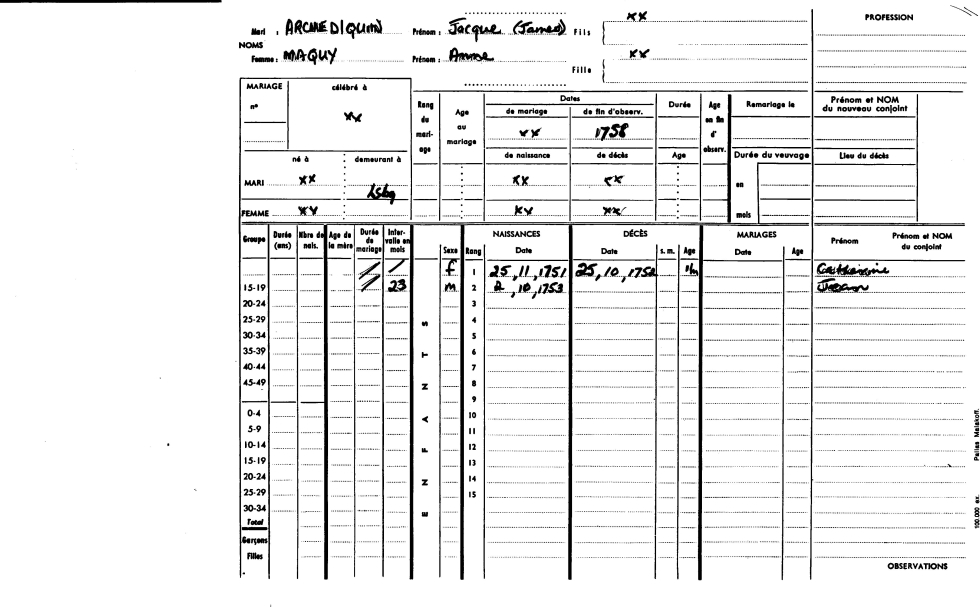 PROFESSION
Mari : ARCHEDIQUIN Prénom : Jacque (James) Fils xx
NOMS
Femme : MAQUY Prénom : Anne Fille xx
MARIAGE célébré à
n° xx
Rang du mari- age
Age au mariage
Dates
de mariage de fin d'observ.
xx 1758
Durée
Age en fin d' observ.
Remariage le
Prénom et NOM du nouveau conjoint
né à demeurant à
de naissance de décès
Age
Durée du veuvage
Lieu du décès
MARI xx xx xx en
FEMME xx xx xx mois
Groupe Durée (ans) Nbre de nais. Age de la mère Durée de mariage Inter- valle en mois Sexe Rang NAISSANCES Date DÉCÈS Date s. m. Age MARIAGES Date Age Prénom Prénom et NOM du conjoint
/ / f 1 25, 11, 1751 25, 10, 1752
15-19 / 23 m 2 2, 10, 1753
20-24 3
25-29 4 S
30-34 5
35-39 6 T
40-44 7
45-49 8 N
9
0-4 10 A
5-9 11
10-14 12 F
15-19 13
20-24 14 N
25-29 15
30-34 E
Total
Garçons
Filles
OBSERVATIONS
100.000 ex. Pallas Malakoff.